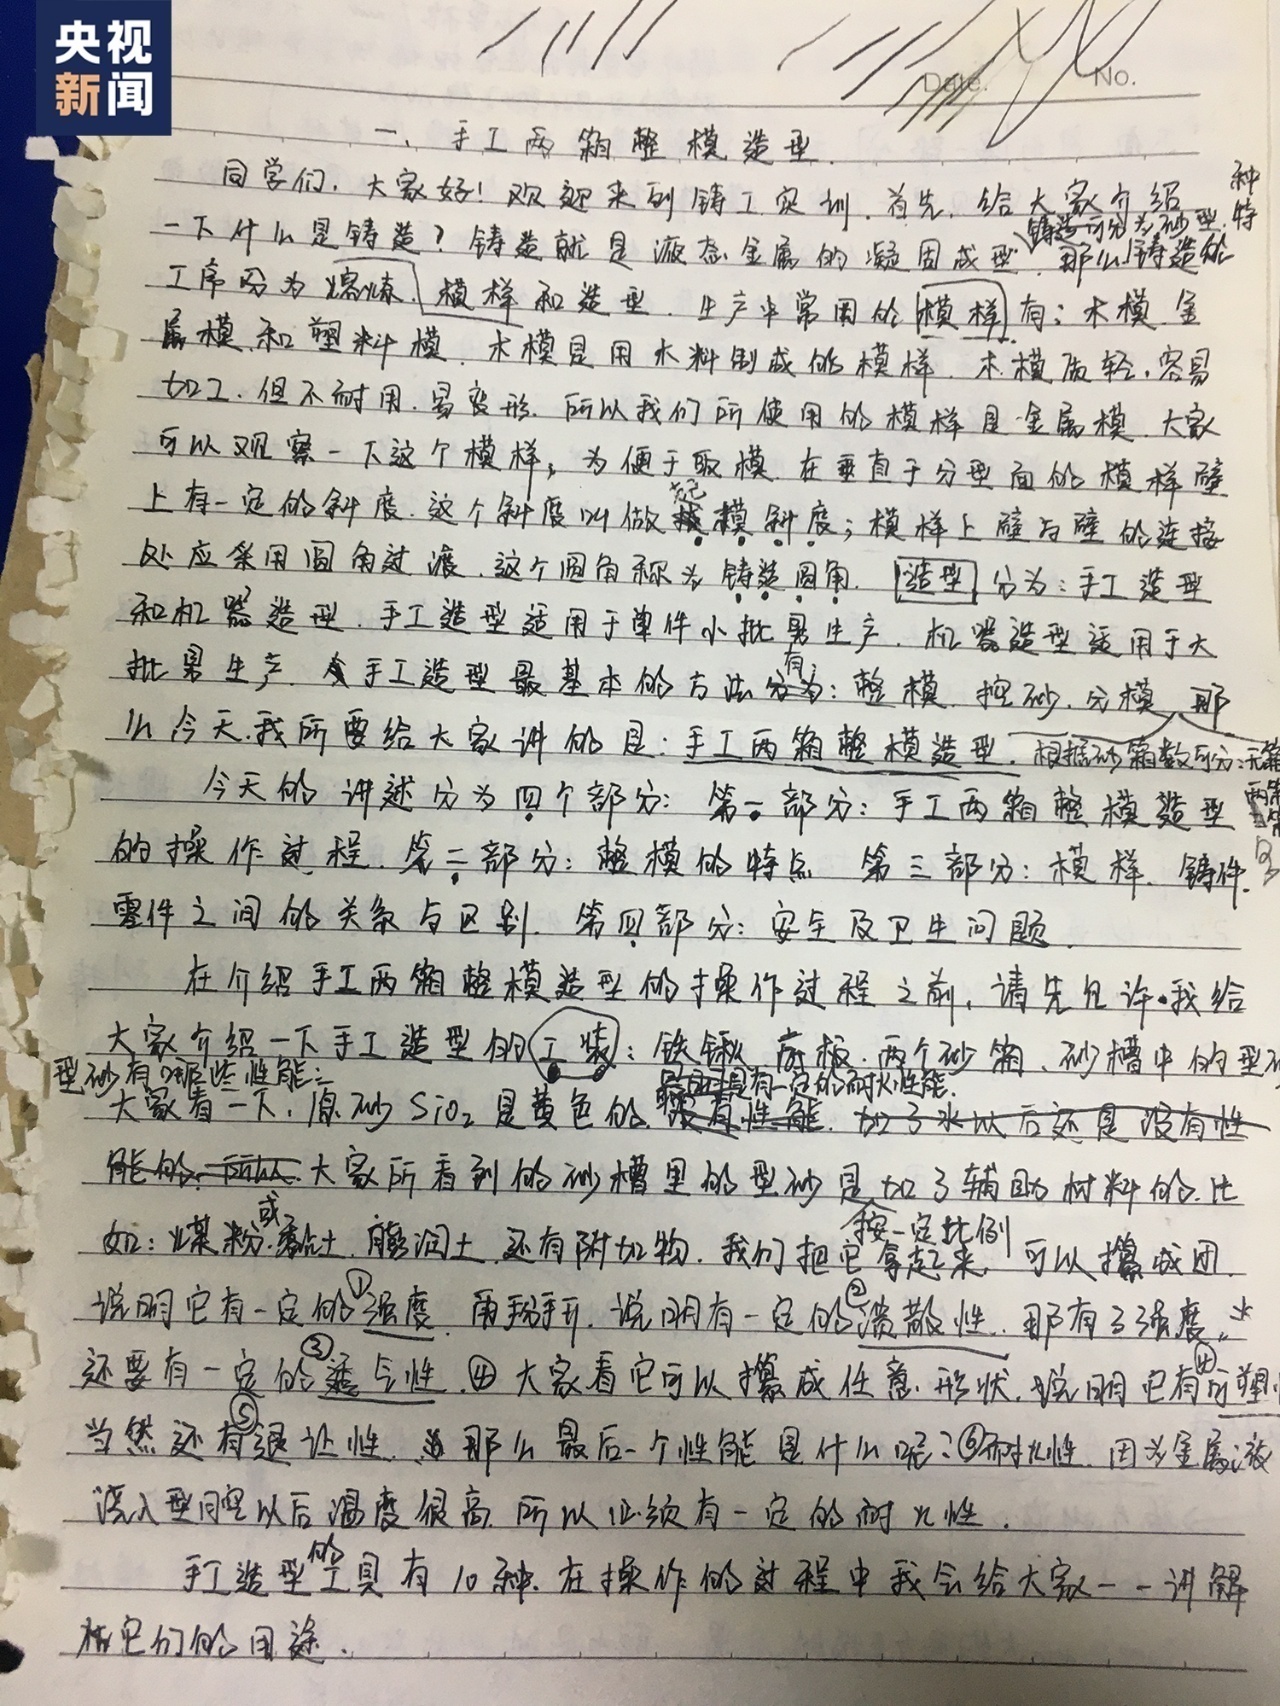 央视
新闻
Date. No.
一、手工两箱整模造型.
同学们,大家好!欢迎来到铸工实训.首先,给大家介绍
种特
铸造可分为:砂型.
一下什么是铸造?铸造就是液态金属的凝固成型,那么铸造的
工序分为熔炼.模样和造型.生产中常用的模样有:木模.金
属模和塑料模.木模是用木料制成的模样.木模质轻,容易
加工.但不耐用.易变形.所以我们所使用的模样是金属模.大家
可以观察一下这个模样,为便于取模在垂直于分型面的模样壁
起
上有一定的斜度.这个斜度叫做模斜度;模样上壁与壁的连接
处应采用圆角过渡.这个圆角称为铸造圆角.造型分为:手工造型
和机器造型.手工造型适用于单件小批量生产.机器造型适用于大
有:
批量生产.手工造型最基本的方法分为:整模.挖砂.分模,那
么今天,我所要给大家讲的是:手工两箱整模造型.根据砂箱数可分:无箱
两箱
今天的讲述分为四个部分:第一部分:手工两箱整模造型
的操作过程.第二部分:整模的特点 第三部分:模样.铸件.
零件之间的关系与区别.第四部分:安全及卫生问题.
在介绍手工两箱整模造型的操作过程之前,请先允许我给
大家介绍一下手工造型的工装:铁锹.底板.两个砂箱.砂槽中的型砂
型砂有哪些性能:
具有一定的耐火性能.
大家看一下,原砂SiO₂是黄色的.没有性能.加了水以后还是没有性
能的.所以大家所看到的砂槽里的型砂是加了辅助材料的.比
或
按一定比例
如:煤粉.黏土.膨润土.还有附加物.我们把它拿起来,可以攥成团.
说明它有一定的①强度.用手掰开.说明有一定的②溃散性.那有了强度,
还要有一定的③透气性.④大家看它可以攥成任意形状.说明它有④可塑性
当然还有⑤退让性.那么最后一个性能是什么呢?⑥耐火性.因为金属液
浇入型腔以后温度很高.所以必须有一定的耐火性.
的
手工造型工具有10种.在操作的过程中我会给大家一一讲解
它们的用途.